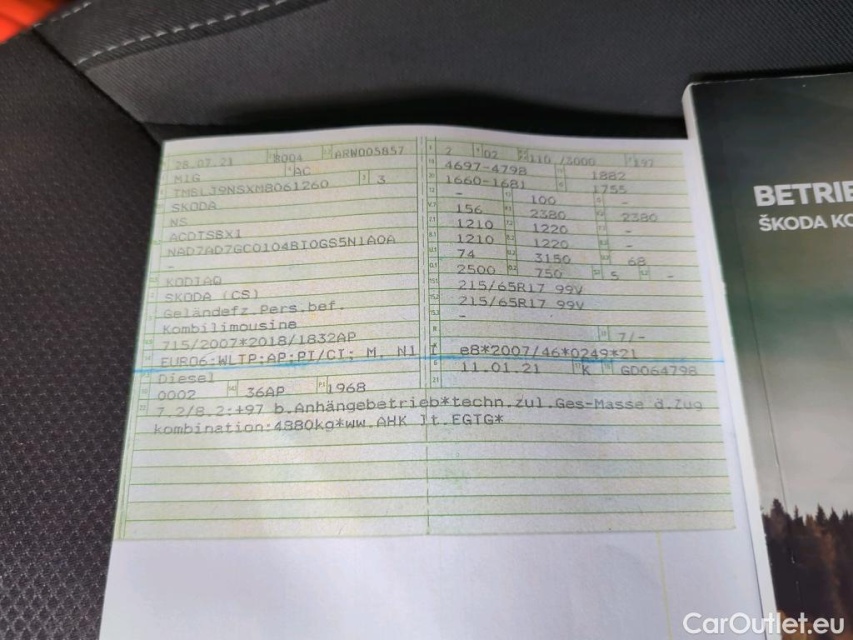 28.07.21 8004 ARW005857
M1G AC
TMBLJ9NSXM8061260 3
SKODA
NS
ACDTSBX1
NAD7AD7GC0104BIOGS5N1A0A
-
KODIAQ
SKODA (CS)
Geländefz.Pers.bef.
Kombilimousine
715/2007*2018/1832AP
EURO6;WLTP;AP;PI/CI; M, N1 I
Diesel
0002 36AP 1968
2 02 110 /3000 197
4697-4798 1882
1660-1681 1755
- 100 -
156 2380 2380
1210 1220 -
1210 1220 -
74 3150 68
2500 750 5 -
215/65R17 99V
215/65R17 99V
-
7/-
e8*2007/46*0249*21
11.01.21 K GD064798
7.2/8.2:+97 b.Anhängebetrieb*techn.zul.Ges-Masse d.Zug
kombination:4880kg*ww.AHK lt.EGTG*
BETRIE
ŠKODA KO
CarOutlet.eu